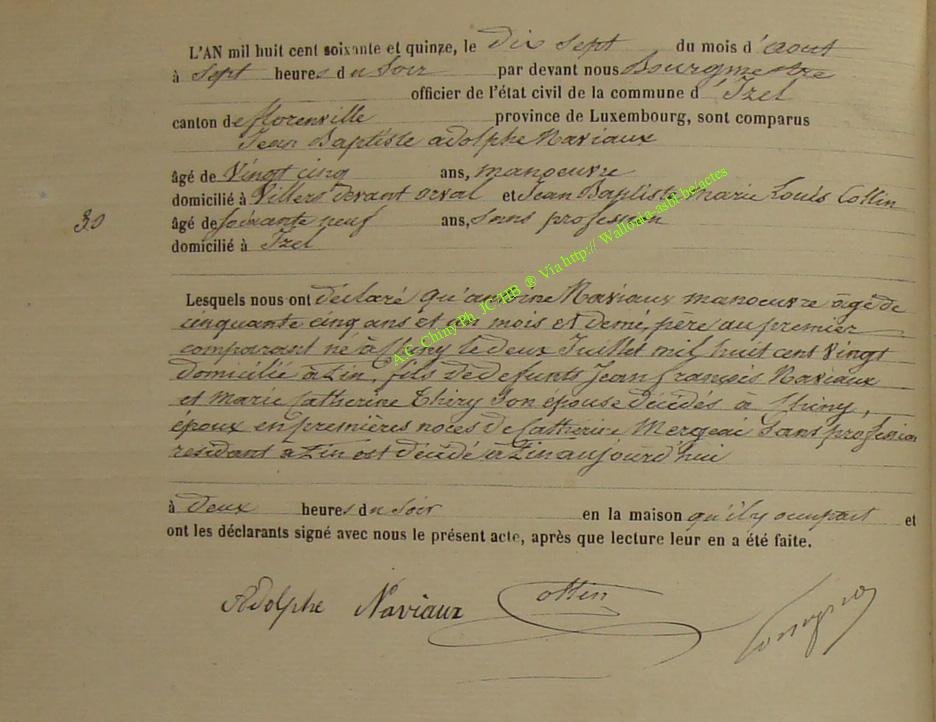 L'AN mil huit cent soixante et quinze, le dix sept du mois d'aout
à sept heures du soir par devant nous Bourgmestre
officier de l'état civil de la commune d'Izel
canton de florenville province de Luxembourg, sont comparus
Jean Baptiste adolphe Naviaux
âgé de Vingt cinq ans, manoeuvre
domicilié à Villers devant orval et Jean Baptiste Marie Louis Collin
30 âgé de soixante neuf ans, sans profession
domicilié à Izel
Lesquels nous ont déclaré qu'antoine Naviaux manoeuvre âgé de
cinquante cinq ans et un mois et demi, père au premier
comparant né à Chiny le deux Juillet mil huit cent vingt
domicilié à Pin, fils de defunts Jean françois Naviaux
et Marie Catherine Thiry son épouse décédés à Chiny,
époux en premières noces de Catherine Mergeai sans profession
résidant à Pin est décédé à Pin aujourd'hui
à deux heures du soir en la maison qu'il y occupait et
ont les déclarants signé avec nous le présent acte, après que lecture leur en a été faite.
Adolphe Naviaux Collin
A.E. Chiny Ph. JC HB ® Via http:// Wallonia-asbl-be/actes